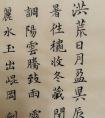 洪荒日月盈昃辰
暑往秋收冬藏閏
調陽雲騰致雨露
麗水玉出崑岡劍